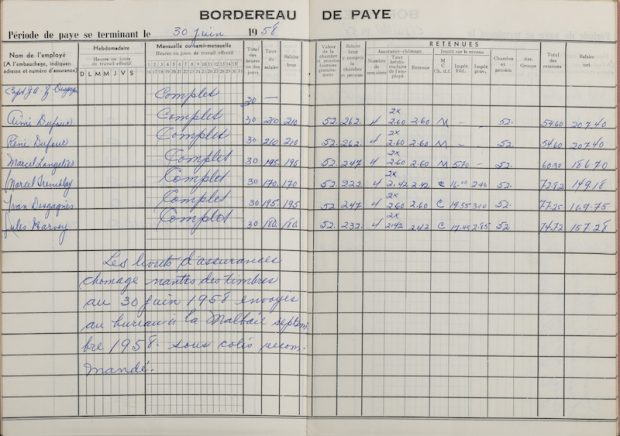 BORDEREAU DE PAYE
Période de paye se terminant le 30 juin 1958
RETENUES
Nom de l'employé
(A l'embauchage, indiquer:
adresse et numéro d'assurance)
Hebdomadaire
Heures ou jours
de travail effectif
D L M M J V S
Mensuelle ou semi-mensuelle
Heures ou jours de travail effectif
Total
des
heures
ou des
jours
Taux
de
salaire
Salaire
brut
Valeur
de la
chambre et
pension
Salaire
y compris
la
chambre
et pension
Assurance-chômage
Nombre
de
semaines
Retenue
Impôt sur le revenu
M
C
Ch. d.f.
Impôt
féd.
Impôt
prov.
Chambre
et
pension
Ass.
Groupe
Total
des
retenues
Salaire
net
Complet 30 —
Aimé Dufour Complet 30 210 210 52. 262. 4 2x 2.60 2.60 M - 52. 54.60 207.40
René Dufour Complet 30 210 210 52. 262. 4 2x 2.60 2.60 M - 52. 54.60 207.40
Marcel Langelier Complet 30 195 195 52. 247. 4 2x 2.60 2.60 M 5.70 - 52. 60.30 186.70
Marcel Tremblay Complet 30 170 170 52. 222. 4 2x 2.42 2.42 C 52. 72.82 149.18
Yvan Desgagnés Complet 30 195 195 52. 247. 4 2x 2.60 2.60 C 19.55 3.10 52. 77.25 169.75
Jules Harvey Complet 30 180. 180. 52. 232. 4 2x 2.42 2.42 C 17.45 2.85 52. 74.72 157.28
Les livrets d'assurances
chomage nantes des timbres
au 30 juin 1958 envoyés
au bureau à la Malbaie septem
bre 1958. sous colis recom
mandé.